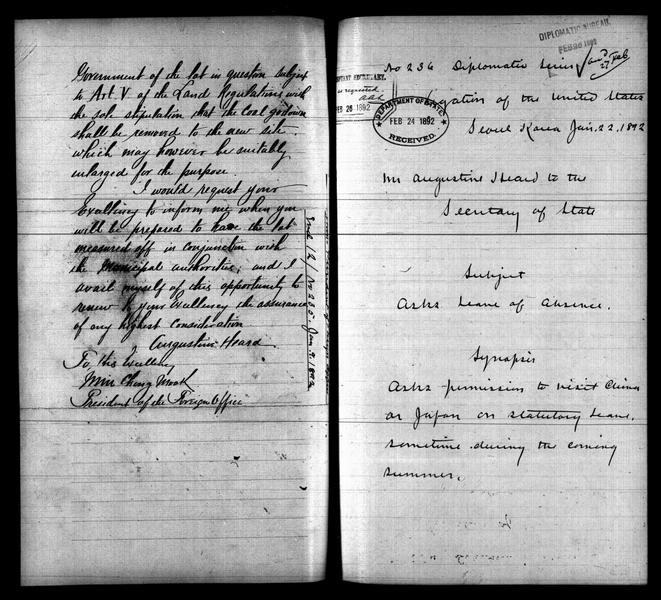 Government of the lot in question subject
to Art V of the Land Regulations with
the sole stipulation that the coal godown
shall be removed to the new site
which may however be suitably
enlarged for the purpose.
I would request your
Excellency to inform me when you
will be prepared to have the lot
measured off in conjunction with
the Municipal authorities; and I
avail myself of this opportunity to
renew to your Excellency the assurance
of my highest consideration
Augustine Heard
To, His Excellency
Min Chong Mook
President of the Foreign Office
Encl 12/ No 235. Jan.
DIPLOMATIC BUREAU
FEB 26 1892
No 236 Diplomatic Series
27 Feb
SECRETARY
as requested
FEB 26 1892
DEPARTMENT OF STATE
FEB 24 1892
RECEIVED
Legation of the United States
Seoul Korea Jan. 22, 1892
Mr Augustine Heard to the
Secretary of State
Subject
Asks Leave of Absence.
Synopsis
Asks permission to visit China
or Japan on statutory leave,
sometime during the coming
summer.